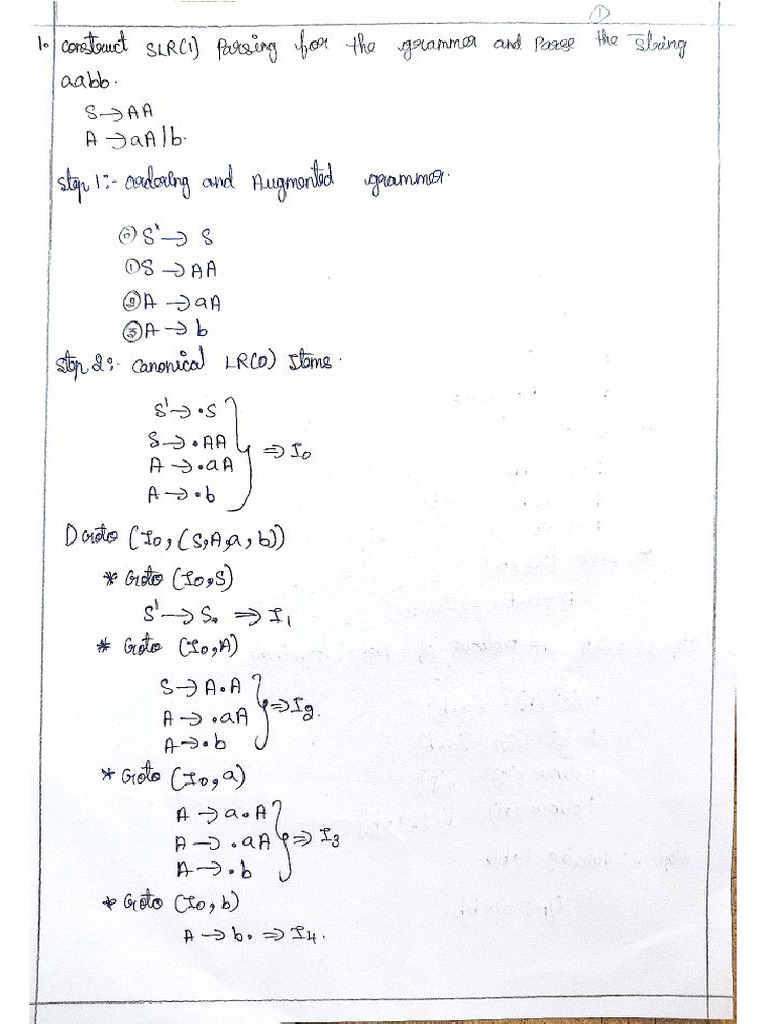 ①
1. construct SLR(1) Parsing for the grammer and Parse the String
aabb.
S → AA
A → aA|b.
Step 1:- ordering and Augmented grammer.
⓪ S' → S
① S → AA
② A → aA
③ A → b
Step 2:- canonical LR(0) Items.
S' → •S
S → •AA
A → •aA
A → •b
⇒ I0
1) Goto (I0, (S,A,a,b))
* Goto (I0,S)
S' → S. ⇒ I1
* Goto (I0,A)
S → A•A
A → •aA
A → •b
⇒ I2.
* Goto (I0,a)
A → a•A
A → •aA
A → •b
⇒ I3
* Goto (I0,b)
A → b. ⇒ I4.